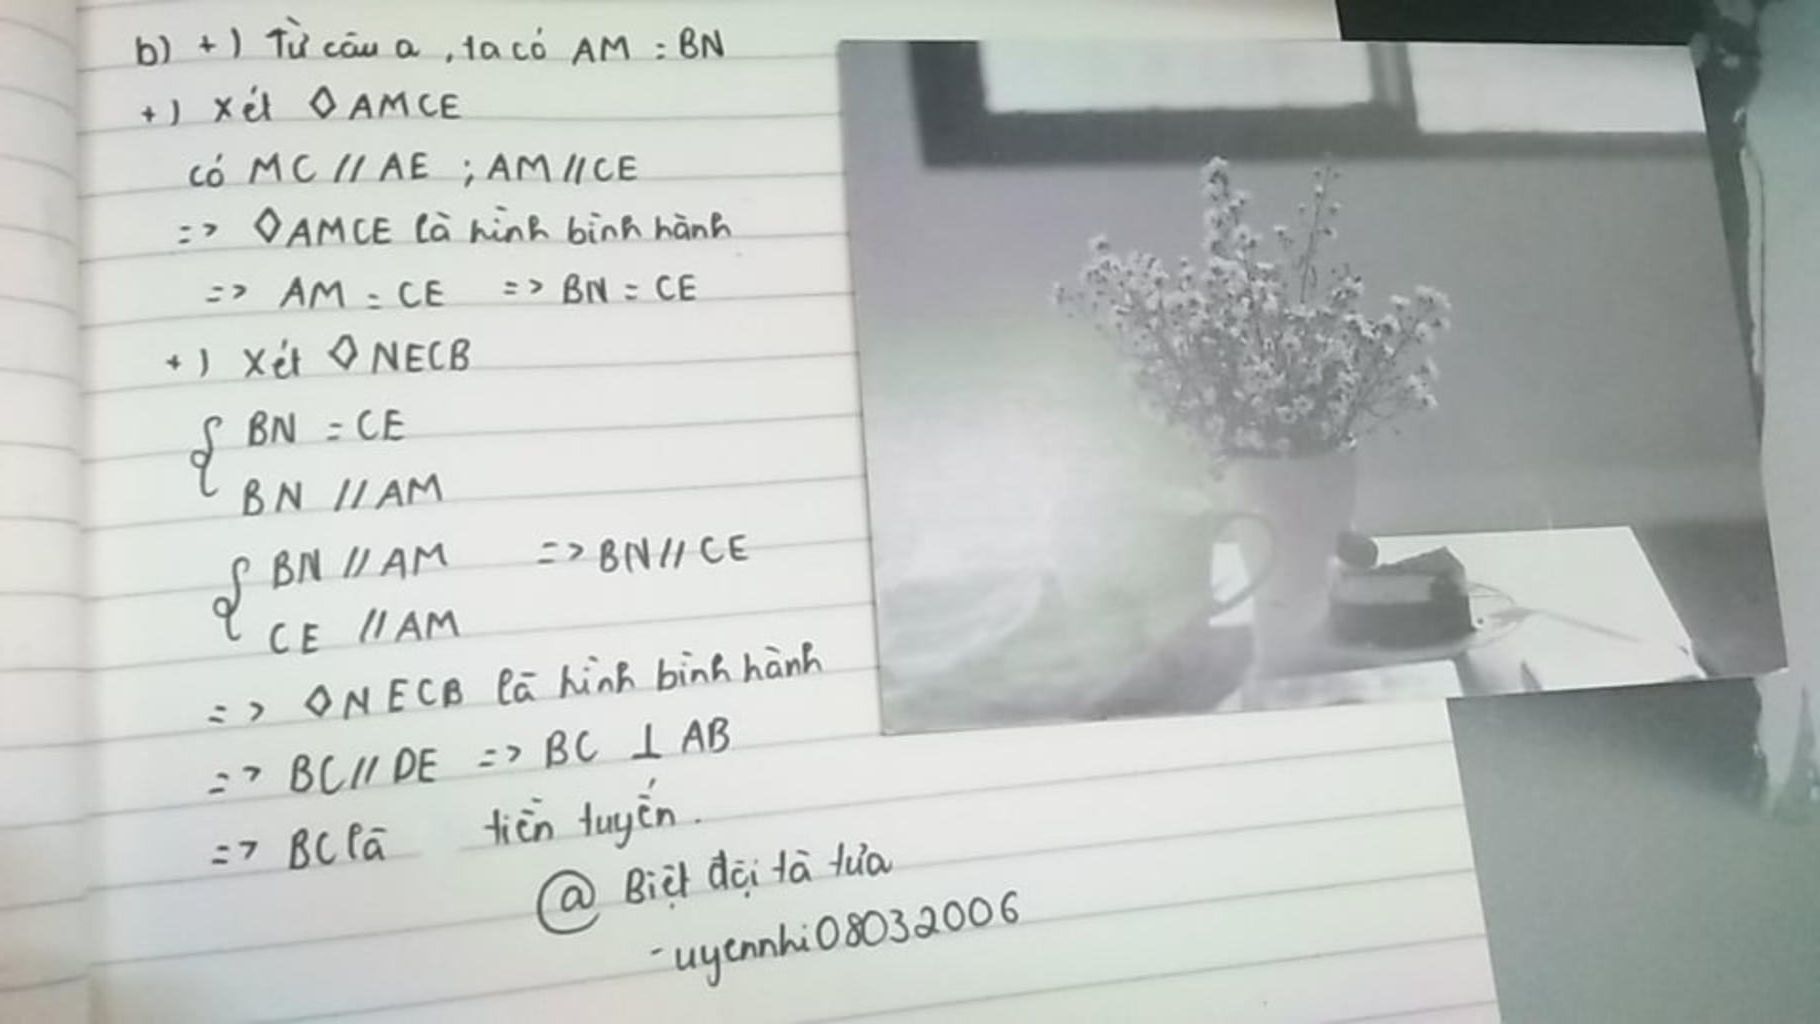 b) +) Từ câu a, ta có AM = BN
+) Xét ◇AMCE
có MC // AE ; AM // CE
=> ◇AMCE là hình bình hành
=> AM = CE => BN = CE
+) Xét ◇NECB
{ BN = CE
BN // AM
{ BN // AM => BN // CE
CE // AM
=> ◇NECB là hình bình hành
=> BC // DE => BC ⊥ AB
=> BC là tiền tuyến.
@ Biệt đội tà tưa
- uyennhi08032006